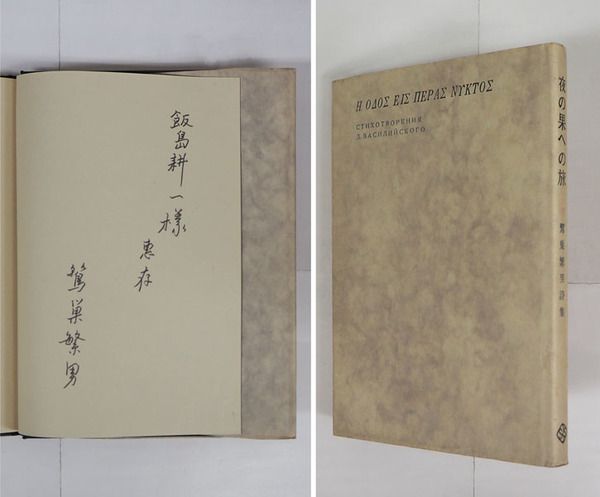 飯島耕一様
恵存
鷲巣繁男
Η ΟΔΟΣ ΕΙΣ ΠΕΡΑΣ ΝΥΚΤΟΣ
СТИХОТВОРЕНИЯ
Д. ВАСИЛИЙСКОГО
夜の果への旅
鷲巣繁男詩集